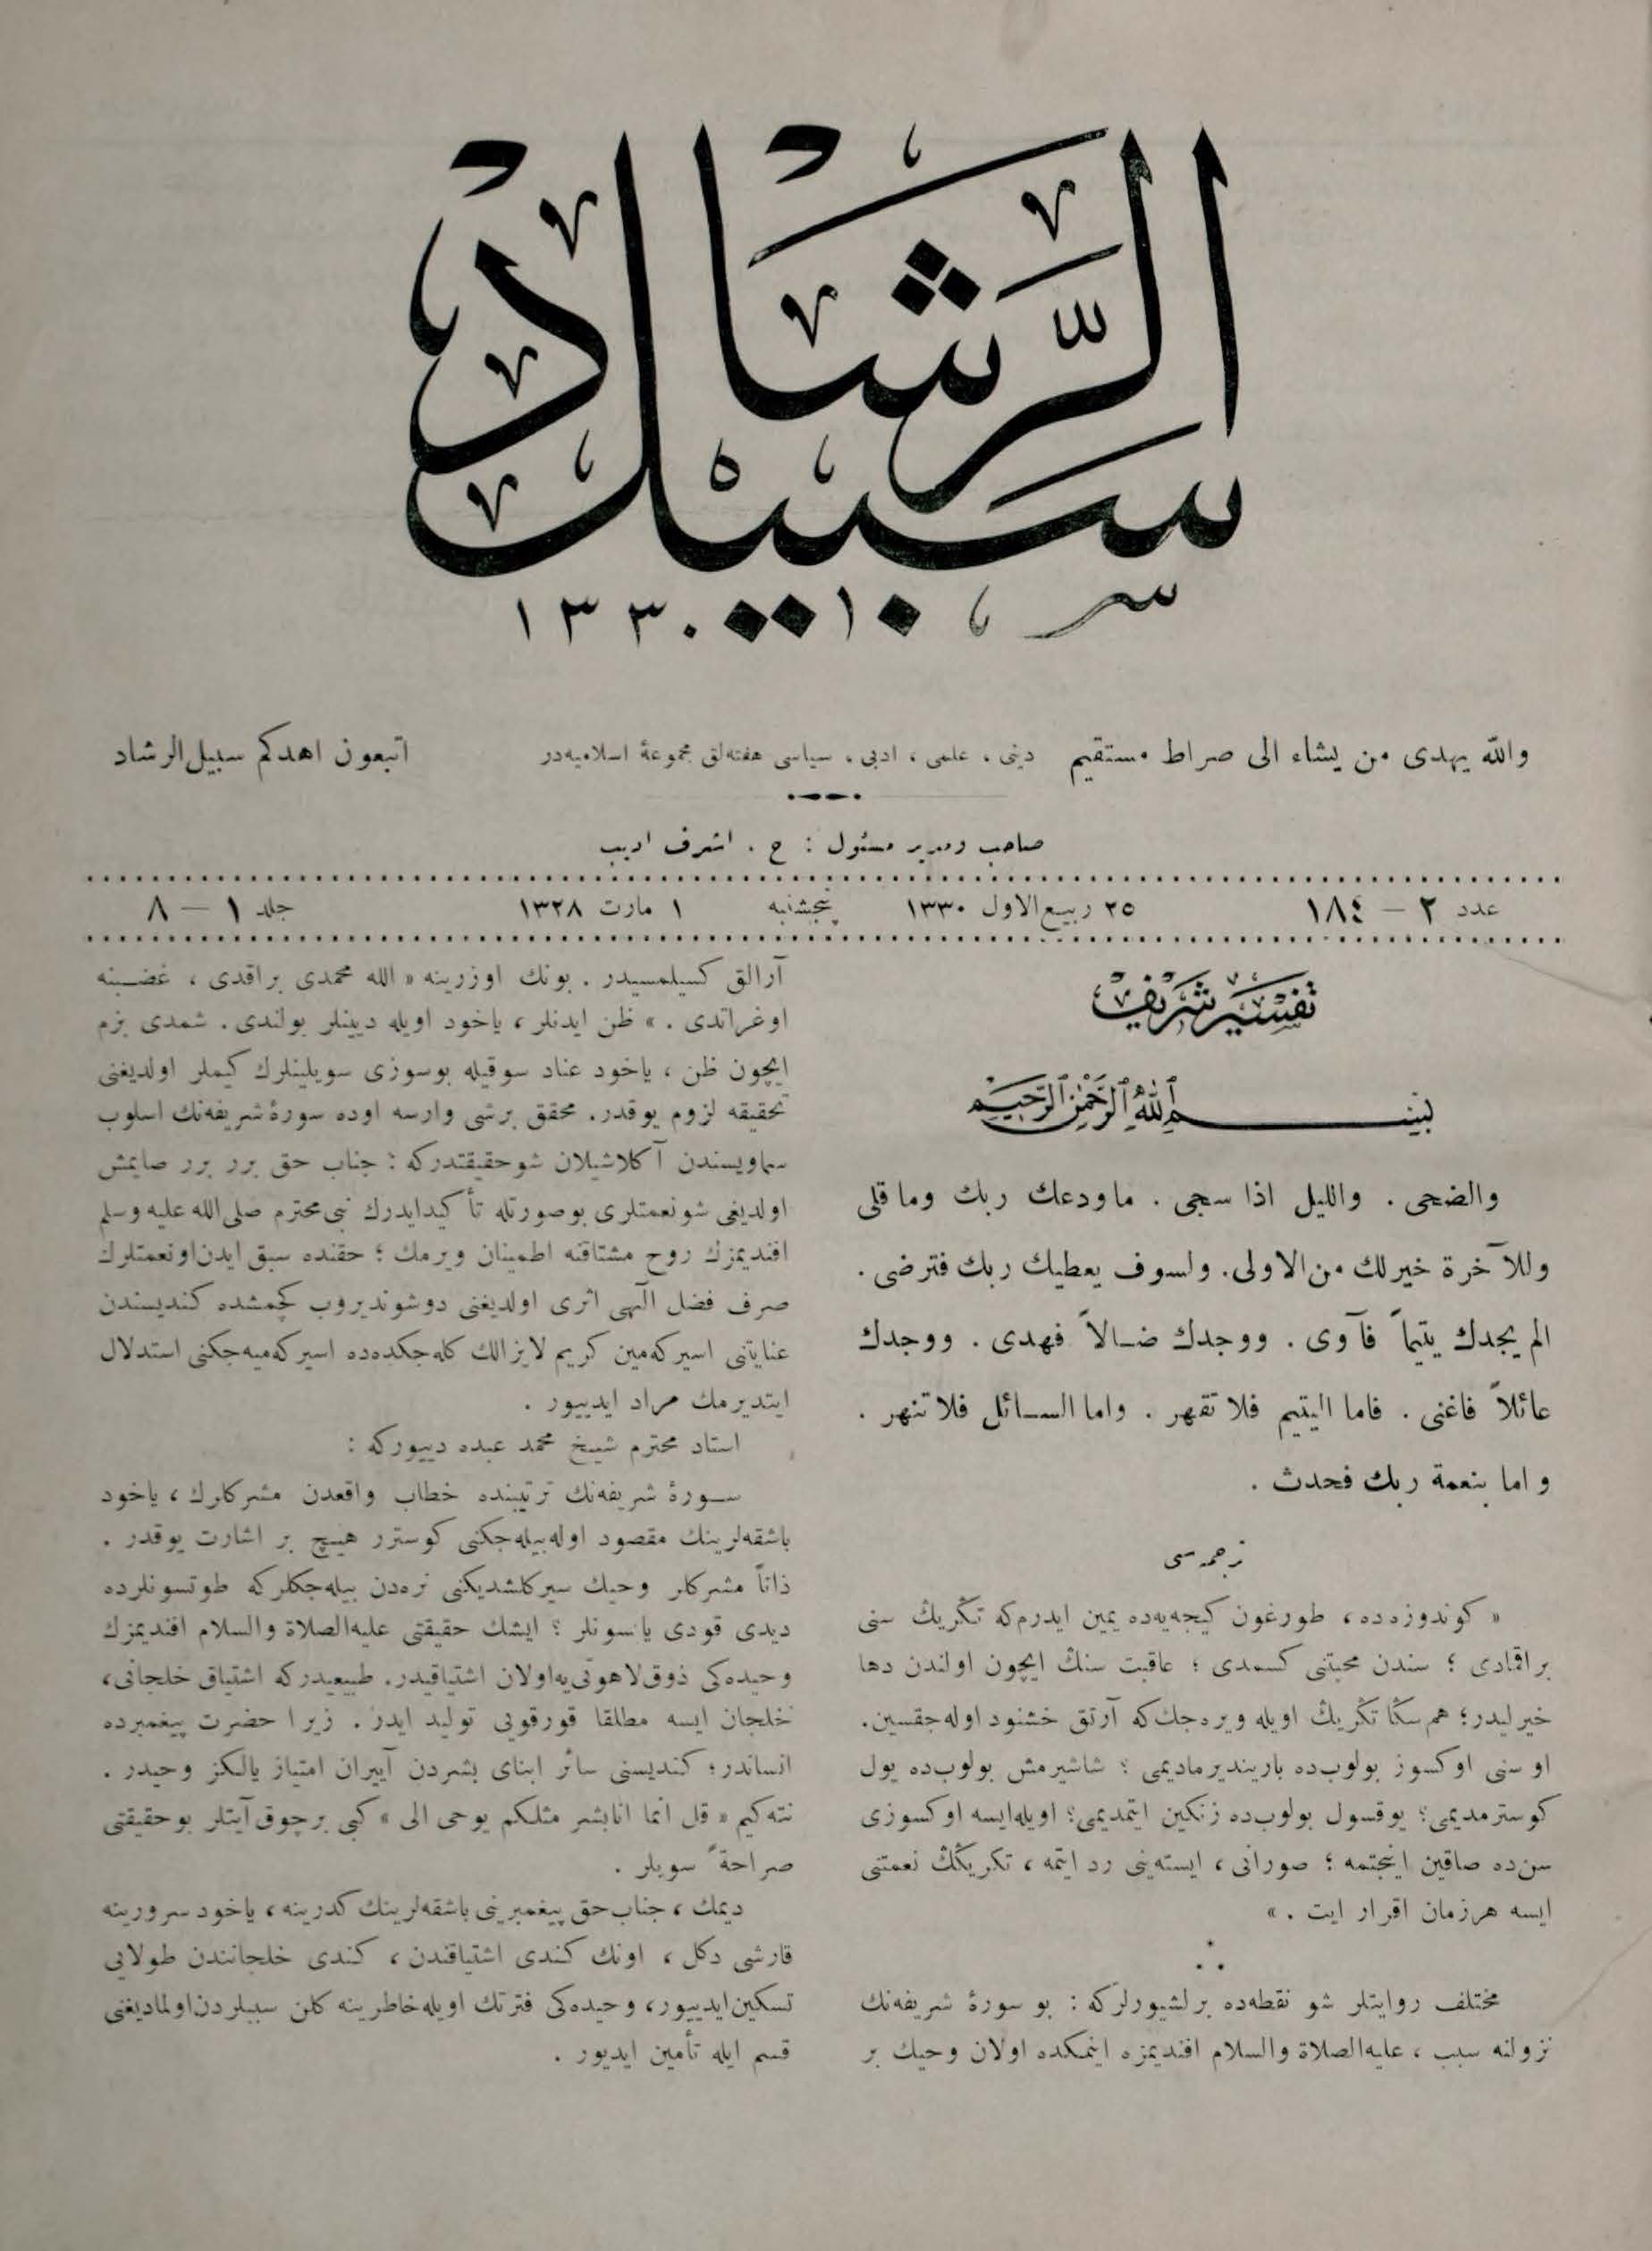 سبيل الرشاد
١٣٣٠
والله يهدى من يشاء الى صراط مستقيم
دينى ، علمى ، ادبى ، سياسى هفته‌لق مجموعهٔ اسلاميه‌در
اتبعون اهدكم سبيل الرشاد
صاحب ومدير مسئول : ح . اشرف اديب
عدد ٢ — ١٨٤
٢٥ ربيع الاول ١٣٣٠
پنجشنبه
١ مارت ١٣٢٨
جلد ١ — ٨
تفسير شريف
بسم الله الرحمن الرحيم
والضحى . والليل اذا سجى . ماودعك ربك وما قلى
وللآخرة خير لك من الاولى. ولسوف يعطيك ربك فترضى .
الم يجدك يتيماً فآوى . ووجدك ضـالاً فهدى . ووجدك
عائلاً فاغنى . فاما اليتيم فلا تقهر . واما السـائل فلا تنهر .
و اما بنعمة ربك فحدث .
ترجمه‌سى
« كوندوزه‌ده، طورغون كيجه‌يه‌ده يمين ايدرم‌كه تڭريڭ سنى
براقمادى ؛ سندن محبتنى كسمدى ؛ عاقبت سنڭ ايچون اولندن دها
خيرليدر؛ هم سڭا تڭريڭ اويله ويره‌جك‌كه آرتق خشنود اوله‌جقسين.
او سنى اوكسوز بولوب‌ده باريندير ماديمى ؟ شاشيرمش بولوب‌ده يول
كوسترمديمى؟ يوقسول بولوب‌ده زنكين ايتمديمى؟ اويله‌ايسه اوكسوزى
سن‌ده صاقين اينجتمه ؛ صورانى ، ايسته‌ينى رد ايتمه ، تكريڭڭ نعمتنى
ايسه هرزمان اقرار ايت . »
مختلف روايتلر شو نقطه‌ده برلشيورلركه : بو سورهٔ شريفه‌نك
نزولنه سبب ، عليه‌الصلاة والسلام افنديمزه اينمكده اولان وحيك بر
آرالق كسيلمسيدر . بونك اوزرينه « الله محمدى براقدى ، غضـبنه
اوغراتدى . » ظن ايدنلر ، ياخود اويله ديينلر بولندى . شمدى بزم
ايچون ظن ، ياخود عناد سوقيله بوسوزى سويلينلرك كيملر اولديغنى
تحقيقه لزوم يوقدر. محقق برشى وارسه اوده سورهٔ شريفه‌نك اسلوب
سماويسندن آكلاشيلان شو حقيقتدركه : جناب حق برر برر صايمش
اولديغى شو نعمتلرى بو صورتله تأكيد ايدرك نبى محترم صلى الله عليه وسلم
افنديمزك روح مشتاقنه اطمينان ويرمك ؛ حقنده سبق ايدن او نعمتلرك
صرف فضل الٓهى اثرى اولديغنى دوشونديروب كچمشده كنديسندن
عنايتنى اسيركه‌مين كريم لايزالك كله‌جكده‌ده اسيركه‌ميه‌جكنى استدلال
ايتديرمك مراد ايدييور .
استاد محترم شيخ محمد عبده دييوركه :
سـورهٔ شريفه‌نك ترتيبنده خطاب واقعدن مشركلرك ، ياخود
باشقه‌لرينك مقصود اوله‌بيله‌جكنى كوسترر هيچ بر اشارت يوقدر .
ذاتاً مشركلر وحيك سيركلشديكنى نره‌دن بيله‌جكلركه طوتسونلرده
ديدى قودى ياپسونلر ؟ ايشك حقيقتى عليه‌الصلاة والسلام افنديمزك
وحيده‌كى ذوق لاهوتى‌يه اولان اشتياقيدر. طبيعيدركه اشتياق خلجانى،
خلجان ايسه مطلقا قورقويى توليد ايدر . زيرا حضرت پيغمبرده
انساندر؛ كنديسنى سائر ابناى بشردن آييران امتياز يالكز وحيدر .
نته‌كيم « قل انما انا بشر مثلكم يوحى الى » كبى برچوق آيتلر بو حقيقتى
صراحةً سويلر .
ديمك ، جناب حق پيغمبرينى باشقه‌لرينك كدرينه ، ياخود سرورينه
قارشى دكل ، اونك كندى اشتياقندن ، كندى خلجانندن طولايى
تسكين ايدييور، وحيده‌كى فترتك اويله خاطرينه كلن سببلردن اولماديغنى
قسم ايله تأمين ايديور .